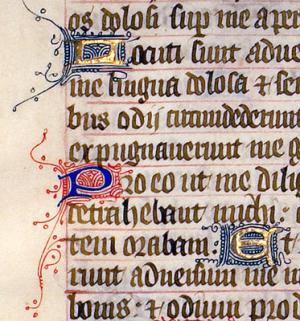 os dolosi sup me aper
Locuti sunt adue
me lingua dolosa et ser
bus odij circumdederunt
expugnauerunt me g
Pro eo ut me dili
detrahebant michi:
tem orabam: Et
runt aduersum me
bonis: et odium pro d